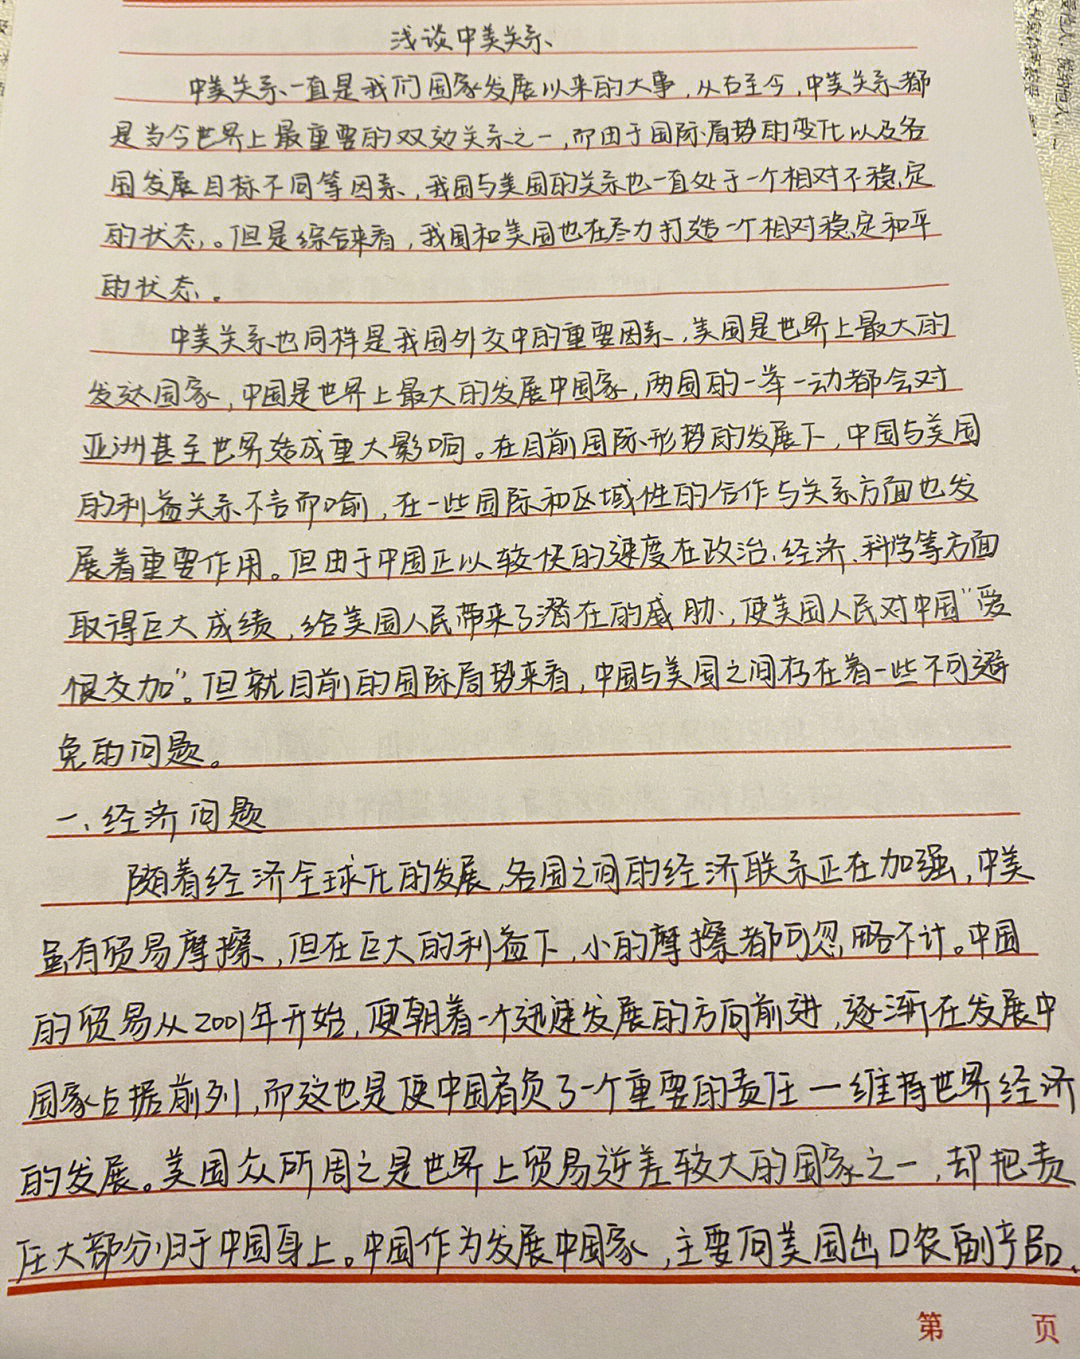 浅谈中美关系
中美关系一直是我们国家发展以来的大事，从古至今，中美关系都
是当今世界上最重要的双边关系之一，而由于国际局势的变化以及各
国发展目标不同等因素，我国与美国的关系也一直处于一个相对不稳定
的状态。但是综合来看，我国和美国也在尽力打造一个相对稳定和平
的状态。
中美关系也同样是我国外交中的重要因素，美国是世界上最大的
发达国家，中国是世界上最大的发展中国家，两国的一举一动都会对
亚洲甚至世界造成重大影响。在目前国际形势的发展下，中国与美国
的利益关系不言而喻，在一些国际和区域性的合作与关系方面也发
展着重要作用。但由于中国正以较快的速度在政治、经济、科学等方面
取得巨大成绩，给美国人民带来了潜在的威胁，使美国人民对中国“爱
恨交加”。但就目前的国际局势来看，中国与美国之间存在着一些不可避
免的问题。
一、经济问题
随着经济全球化的发展，各国之间的经济联系正在加强，中美
虽有贸易摩擦，但在巨大的利益下，小的摩擦都可忽略不计。中国
的贸易从2001年开始，便朝着一个迅速发展的方向前进，逐渐在发展中
国家占据前列，而这也是使中国肩负了一个重要的责任一维持世界经济
的发展。美国众所周之是世界上贸易逆差较大的国家之一，却把责
任大部分归于中国身上。中国作为发展中国家，主要向美国出口农副产品、
第 页